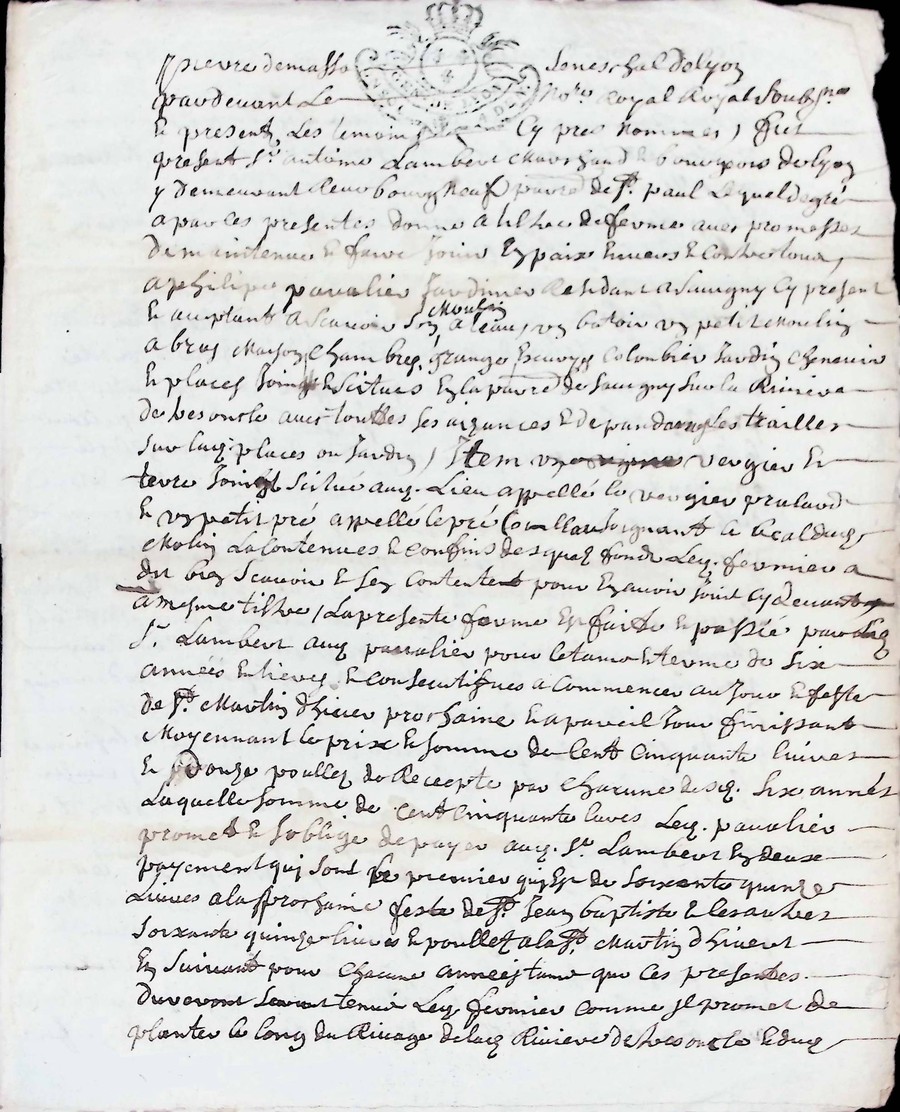 pierre de masso Seneschal de lyon
pardevant Le No.re Royal Royal Soubzne
& presentz Les temoins Cy pres nommes / fut
present Sr. antoine Lambert Marchand & bourgeois de lyon
y Demeurant Rue bourgneuf parre de St. paul Lequel de gré
a par ces presentes donne a tiltre de ferme avec promesses
De maintenue & faire Jouir En paix Envers & Contre tous
a philipe pavalier Jardinier Residant a Savigny Cy present
& acceptant a Scavoir Son Moulin a leau, un batoir un petit Moulin
a bras Maison Chambres, grange Escuyes Colombier Jardin Chenevier
& places Joints & Scitues En la parre de Savigny Sur la Riviere
de avec touttes Ses aizances & dependances Les trailles
Sur lesq. places ou Jardin / Item vergier &
terre Joints Scitue auq. Lieu appellé le vergier
& un petit pré appellé le pré Joignant le dud.
Molin La Contenues & Confins desquelz fondz Led. fermier a
dit bien Scavoir & Sen Contenter pour En avoir Joui Cy devant
a mesme tiltre / La presente ferme Est faite & passée par led.
Sr. Lambert aud. pavalier pour Le tams & terme de Six
années Entieres & Consecutifves a Commencer au Jour & feste
de St. Martin dhiver prochaine & a pareil Jour finissant
Moyennant le prix & Somme de Cent Cinquante livres
& Douze poulles de Recepte par Chacune desd. Six annés
Laquelle Somme de Cent Cinquante livres Led. pavalier
promet & Soblige de payer aud. Sr. Lambert En deux
payement qui Sont le premier qui Est de Soixante quinze
Livres a la prochaine feste de St. Jean baptiste & les autres
Soixante quinze livres & poulles a la St. Martin dhivert
En Suivant pour Chacune année tams que Ces presentes
Dureront Sera tenu Led. fermier Comme Il promet de
planter le long du Rivage de lad. Riviere de & dud.